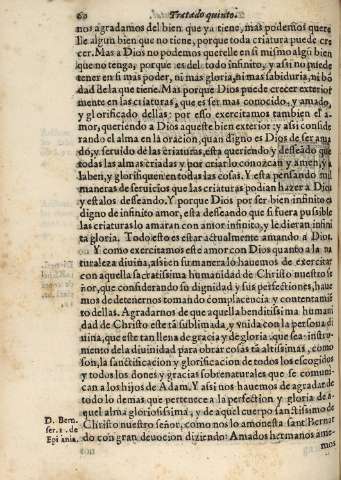 60 Tratado quinto.
nos agradamos del bien que ya tiene, mas podemos quere
lle algun bien que no tiene, porque toda criatura puede cre
cer. Mas a Dios no podemos querelle en si mismo algũ bien
que no tenga, porque es del todo infinito, y assi no puede
tener en si mas poder, ni mas gloria, ni mas sabiduria, ni bõ
dad de la que tiene. Mas porque Dios puede crecer exterior
mente en las criaturas, que es ser mas conocido, y amado,
y glorificado dellas: por esso exercitamos tambien el a-
mor, queriendo a Dios aqueste bien exterior: y assi conside
rando el alma en la oracion, quan digno es Dios de ser ama
do, y seruido de las criaturas, esta queriendo y desseãdo que
todas las almas criadas y por criar lo conozcan y amen, y a
laben, y glorifiquen en todas las cosas. Y esta pensando mil
maneras de seruicios que las criaturas podian hazer a Dios
y estalos desseando. Y porque Dios por ser bien infinito es
digno de infinito amor, esta desseando que si fuera pussible
las criaturas lo amaran con amor infinito, y le dieran infini
ta gloria. Todo esto es estar actualmente amando a Dios.
Y como exercitamos este amor con Dios quanto a la na
turaleza diuina, assi en su manera lo hauemos de exercitar
con aquella sacratissima humanidad de Christo nuestro se
ñor, que considerando su dignidad y sus perfectiones, haue
mos de detenernos tomando complacencia y contentamiẽ
to dellas. Agradarnos de que aquella benditissima humani
dad de Christo este tã sublimada, y vnida con la persona di
uina, que este tan llena de gracia y de gloria, que sea instru-
mento de la diuinidad para obrar cosas tã altissimas, como
son, la sanctificacion y glorificacion de todos los escogidos
y todos los dones y gracias sobrenaturales que se comuni-
can a los hijos de Adam. Y assi nos hauemos de agradar de
todo lo demas que pertenece a la perfection y gloria de a-
quel alma gloriosissima, y de aquel cuerpo sanctissimo de
Christo nuestro señor, como nos lo amonesta sant Bernar
do con gran deuocion diziendo: Amados hermanos ame-
mos
D. Bern.
ser. 1. de
Epi ania.